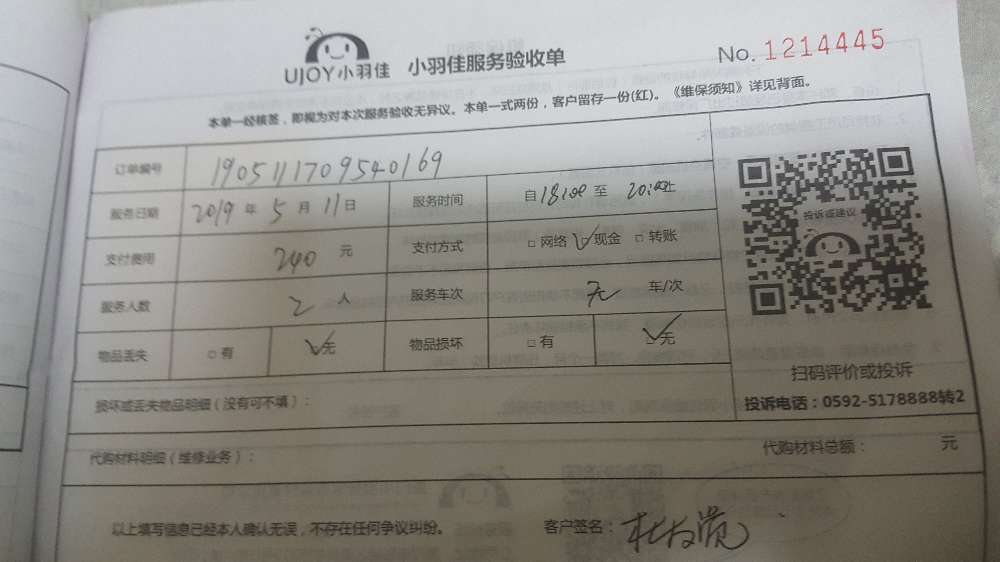 UJOY小羽佳 小羽佳服务验收单 No. 1214445
本单一经核签，即视为对本次服务验收无异议。本单一式两份，客户留存一份(红)。《维保须知》详见背面。
订单编号 1905111709540169
服务日期 2019 年 5 月 11 日 服务时间 自 18:00 至 20:00 止
支付费用 240 元 支付方式 □ 网络 ☑ 现金 □ 转账
服务人数 2 人 服务车次 无 车/次
物品丢失 □ 有 ☑ 无 物品损坏 □ 有 ☑ 无
投诉或建议
扫码评价或投诉
投诉电话：0592-5178888转2
损坏或丢失物品明细（没有可不填）：
代购材料明细（维修业务）： 代购材料总额： 元
以上填写信息已经本人确认无误，不存在任何争议纠纷。 客户签名：